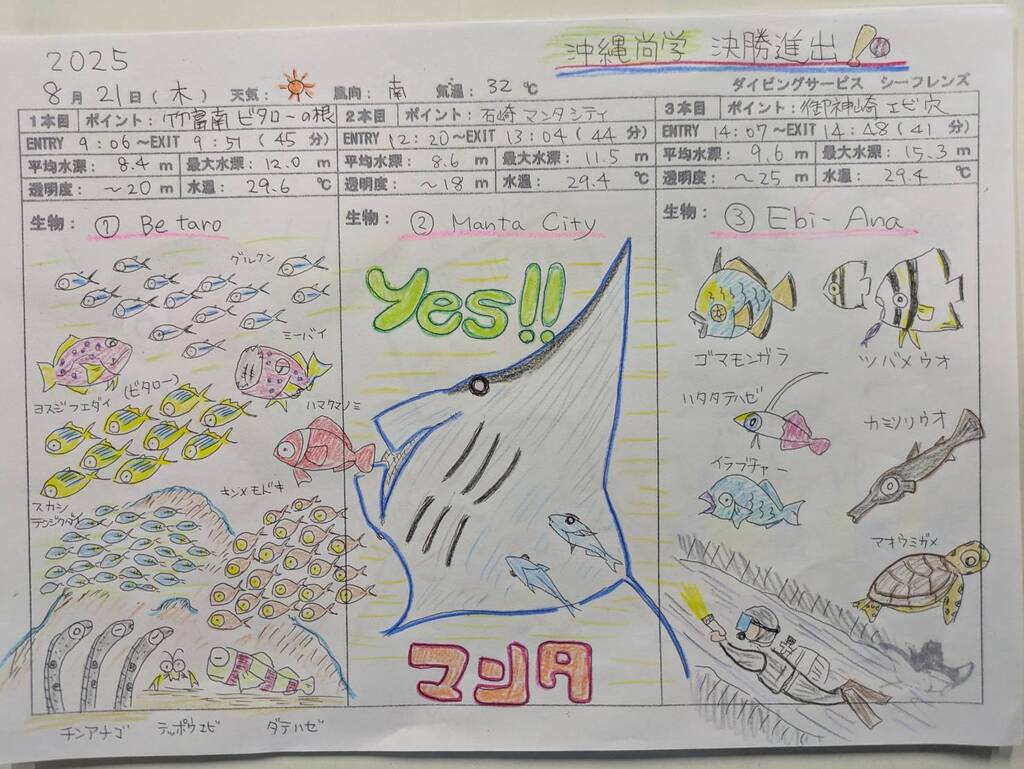 2025
沖縄尚学 決勝進出
8月21日(木) 天気: 風向: 南 気温: 32℃
ダイビングサービス シーフレンズ
1本目 ポイント: 竹富南 ビタローの根
ENTRY 9:06~EXIT 9:51 (45 分)
平均水深: 8.4 m 最大水深: 12.0 m
透明度: ~20 m 水温: 29.6 ℃
生物: ① Be taro
グルクン
ミーバイ
(ビタロー)
ヨスジフエダイ
ハマクマノミ
キンメモドキ
スカシ
テンジクダイ
チンアナゴ テッポウエビ ダテハゼ
2本目 ポイント: 石崎 マンタシティ
ENTRY 12:20~EXIT 13:04 (44 分)
平均水深: 8.6 m 最大水深: 11.5 m
透明度: ~18 m 水温: 29.4 ℃
生物: ② Manta City
Yes!!
マンタ
3本目 ポイント: 御神崎 エビ穴
ENTRY 14:07~EXIT 14:48 (41 分)
平均水深: 9.6 m 最大水深: 15.3 m
透明度: ~25 m 水温: 29.4 ℃
生物: ③ Ebi-Ana
ゴマモンガラ ツバメウオ
ハタタテハゼ
カミソリウオ
イラブチャー
アオウミガメ